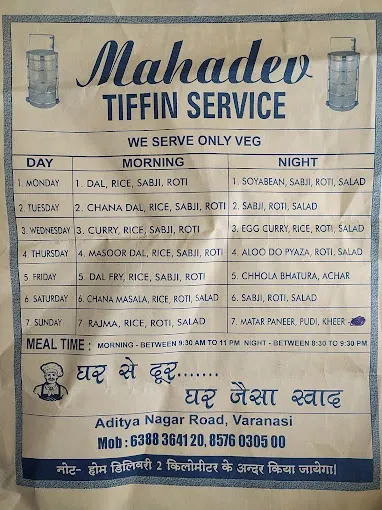 Mahadev
TIFFIN SERVICE
WE SERVE ONLY VEG
DAY MORNING NIGHT
1. MONDAY 1. DAL, RICE, SABJI, ROTI 1. SOYABEAN, SABJI, ROTI, SALAD
2. TUESDAY 2. CHANA DAL, RICE, SABJI, ROTI 2. SABJI, ROTI, SALAD
3. WEDNESDAY 3. CURRY, RICE, SABJI, ROTI 3. EGG CURRY, RICE, ROTI, SALAD
4. THURSDAY 4. MASOOR DAL, RICE, SABJI, ROTI 4. ALOO DO PYAZA, ROTI, SALAD
5. FRIDAY 5. DAL FRY, RICE, SABJI, ROTI 5. CHHOLA BHATURA, ACHAR
6. SATURDAY 6. CHANA MASALA, RICE, ROTI, SALAD 6. SABJI, ROTI, SALAD
7. SUNDAY 7. RAJMA, RICE, ROTI, SALAD 7. MATAR PANEER, PUDI, KHEER
MEAL TIME : MORNING - BETWEEN 9:30 AM TO 11 PM NIGHT - BETWEEN 8:30 TO 9:30 PM
घर से दूर.......
घर जैसा स्वाद
Aditya Nagar Road, Varanasi
Mob : 6388 3641 20, 8576 0305 00
नोट- होम डिलिवरी 2 किलोमीटर के अन्दर किया जायेगा।